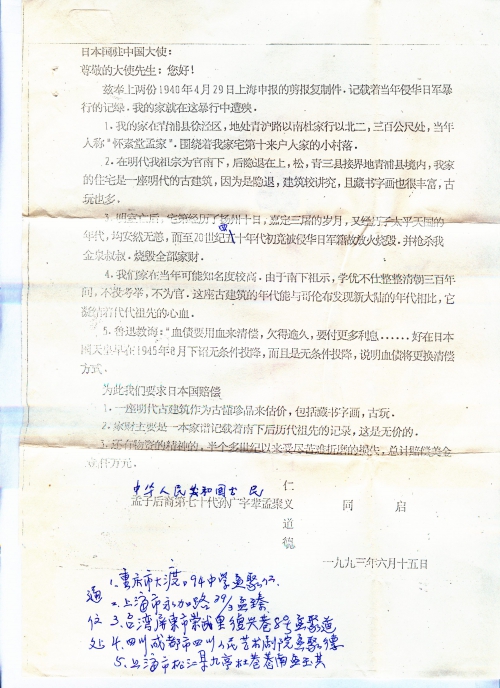 日本国驻中国大使:
尊敬的大使先生:您好!
兹奉上两份1940年4月29日上海申报的剪报复制件.记载着当年侵华日军暴
行的记绿.我的家就在这暴行中遭殃.
1.我的家在青浦县徐泾区,地处青沪路以南杜家行以北二,三百公尺处,当年
人称"怀素堂孟家".围绕着我家宅第十来户人家的小村落.
2.在明代我祖宗为官南下,后隐退在上,松,青三县接界地青浦县境内,我家
的住宅是一座明代的古建筑,因为是隐退,建筑较讲究,且藏书字画也很丰富,古
玩也多.
3.明室亡后,宅第经历了扬州十日,嘉定三屠的岁月,又经历了太平天国的
年代,均安然无恙,而至20世纪四十年代初竟被侵华日军纵火烧毁.并枪杀我
金泉叔叔.烧毁全部家财.
4.我们家在当年可能知名度较高.由于南下祖示,学优不仕整整清朝三百年
间,不投考举,不为官.这座古建筑的年代能与哥伦布发现新大陆的年代相比,它
代代祖先的心血.
5.鲁迅教诲:"血债要用血来清偿,欠得逾久,要付更多利息......好在日本
国天皇早在1945年8月下诏无条件投降,而且是无条件投降,说明血债将更换清偿
方式.
为此我们要求日本国赔偿
1.一座明代古建筑作为古储珍品来估价,包括藏书字画,古玩.
2.家财主要是一本家谱记载着南下后历代祖先的记录,这是无价的.
3.还有物资的精神的,半个多世纪以来受尽苦难折磨的损失,总计赔偿美金
万元.
中华人民共和国公民
孟子后裔第七十代孙广字辈孟聚 仁义道德 同 启
一九九三年六月十五日
通 1.重庆市大渡口94中学孟聚仁
2.上海市永加路29/3孟臻
位 3.台湾屏东市荣城里復兴巷8号孟聚道
处 4.四川成都市四川人民艺术剧院孟聚德
5.上海市松江县九亭杜巷巷南孟玉其